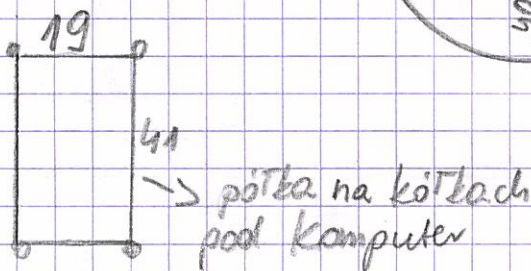 19
41
półka na kółkach
pod komputer